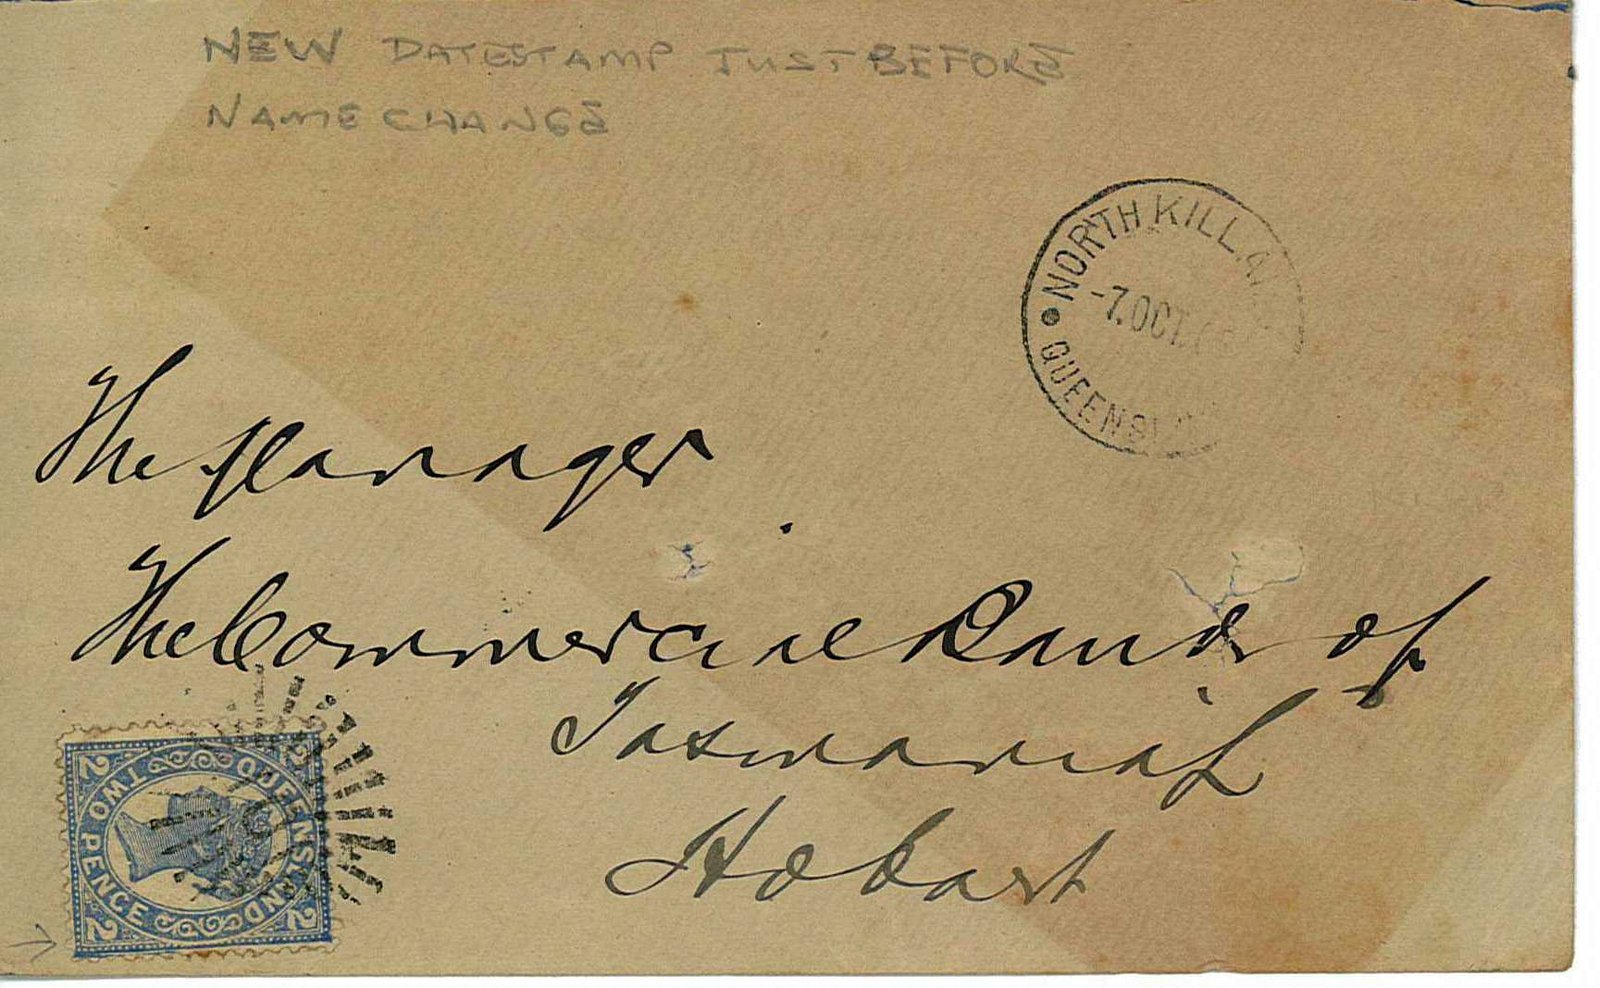 NEW DATESTAMP JUST BEFORE
NAME CHANGE
NORTH KILLAN
-7.OCT.
QUEENSL
The Manager
The Commercial Bank of
Tasmania L
Hobart
QUEENSLAND
TWO PENCE
2
2
2